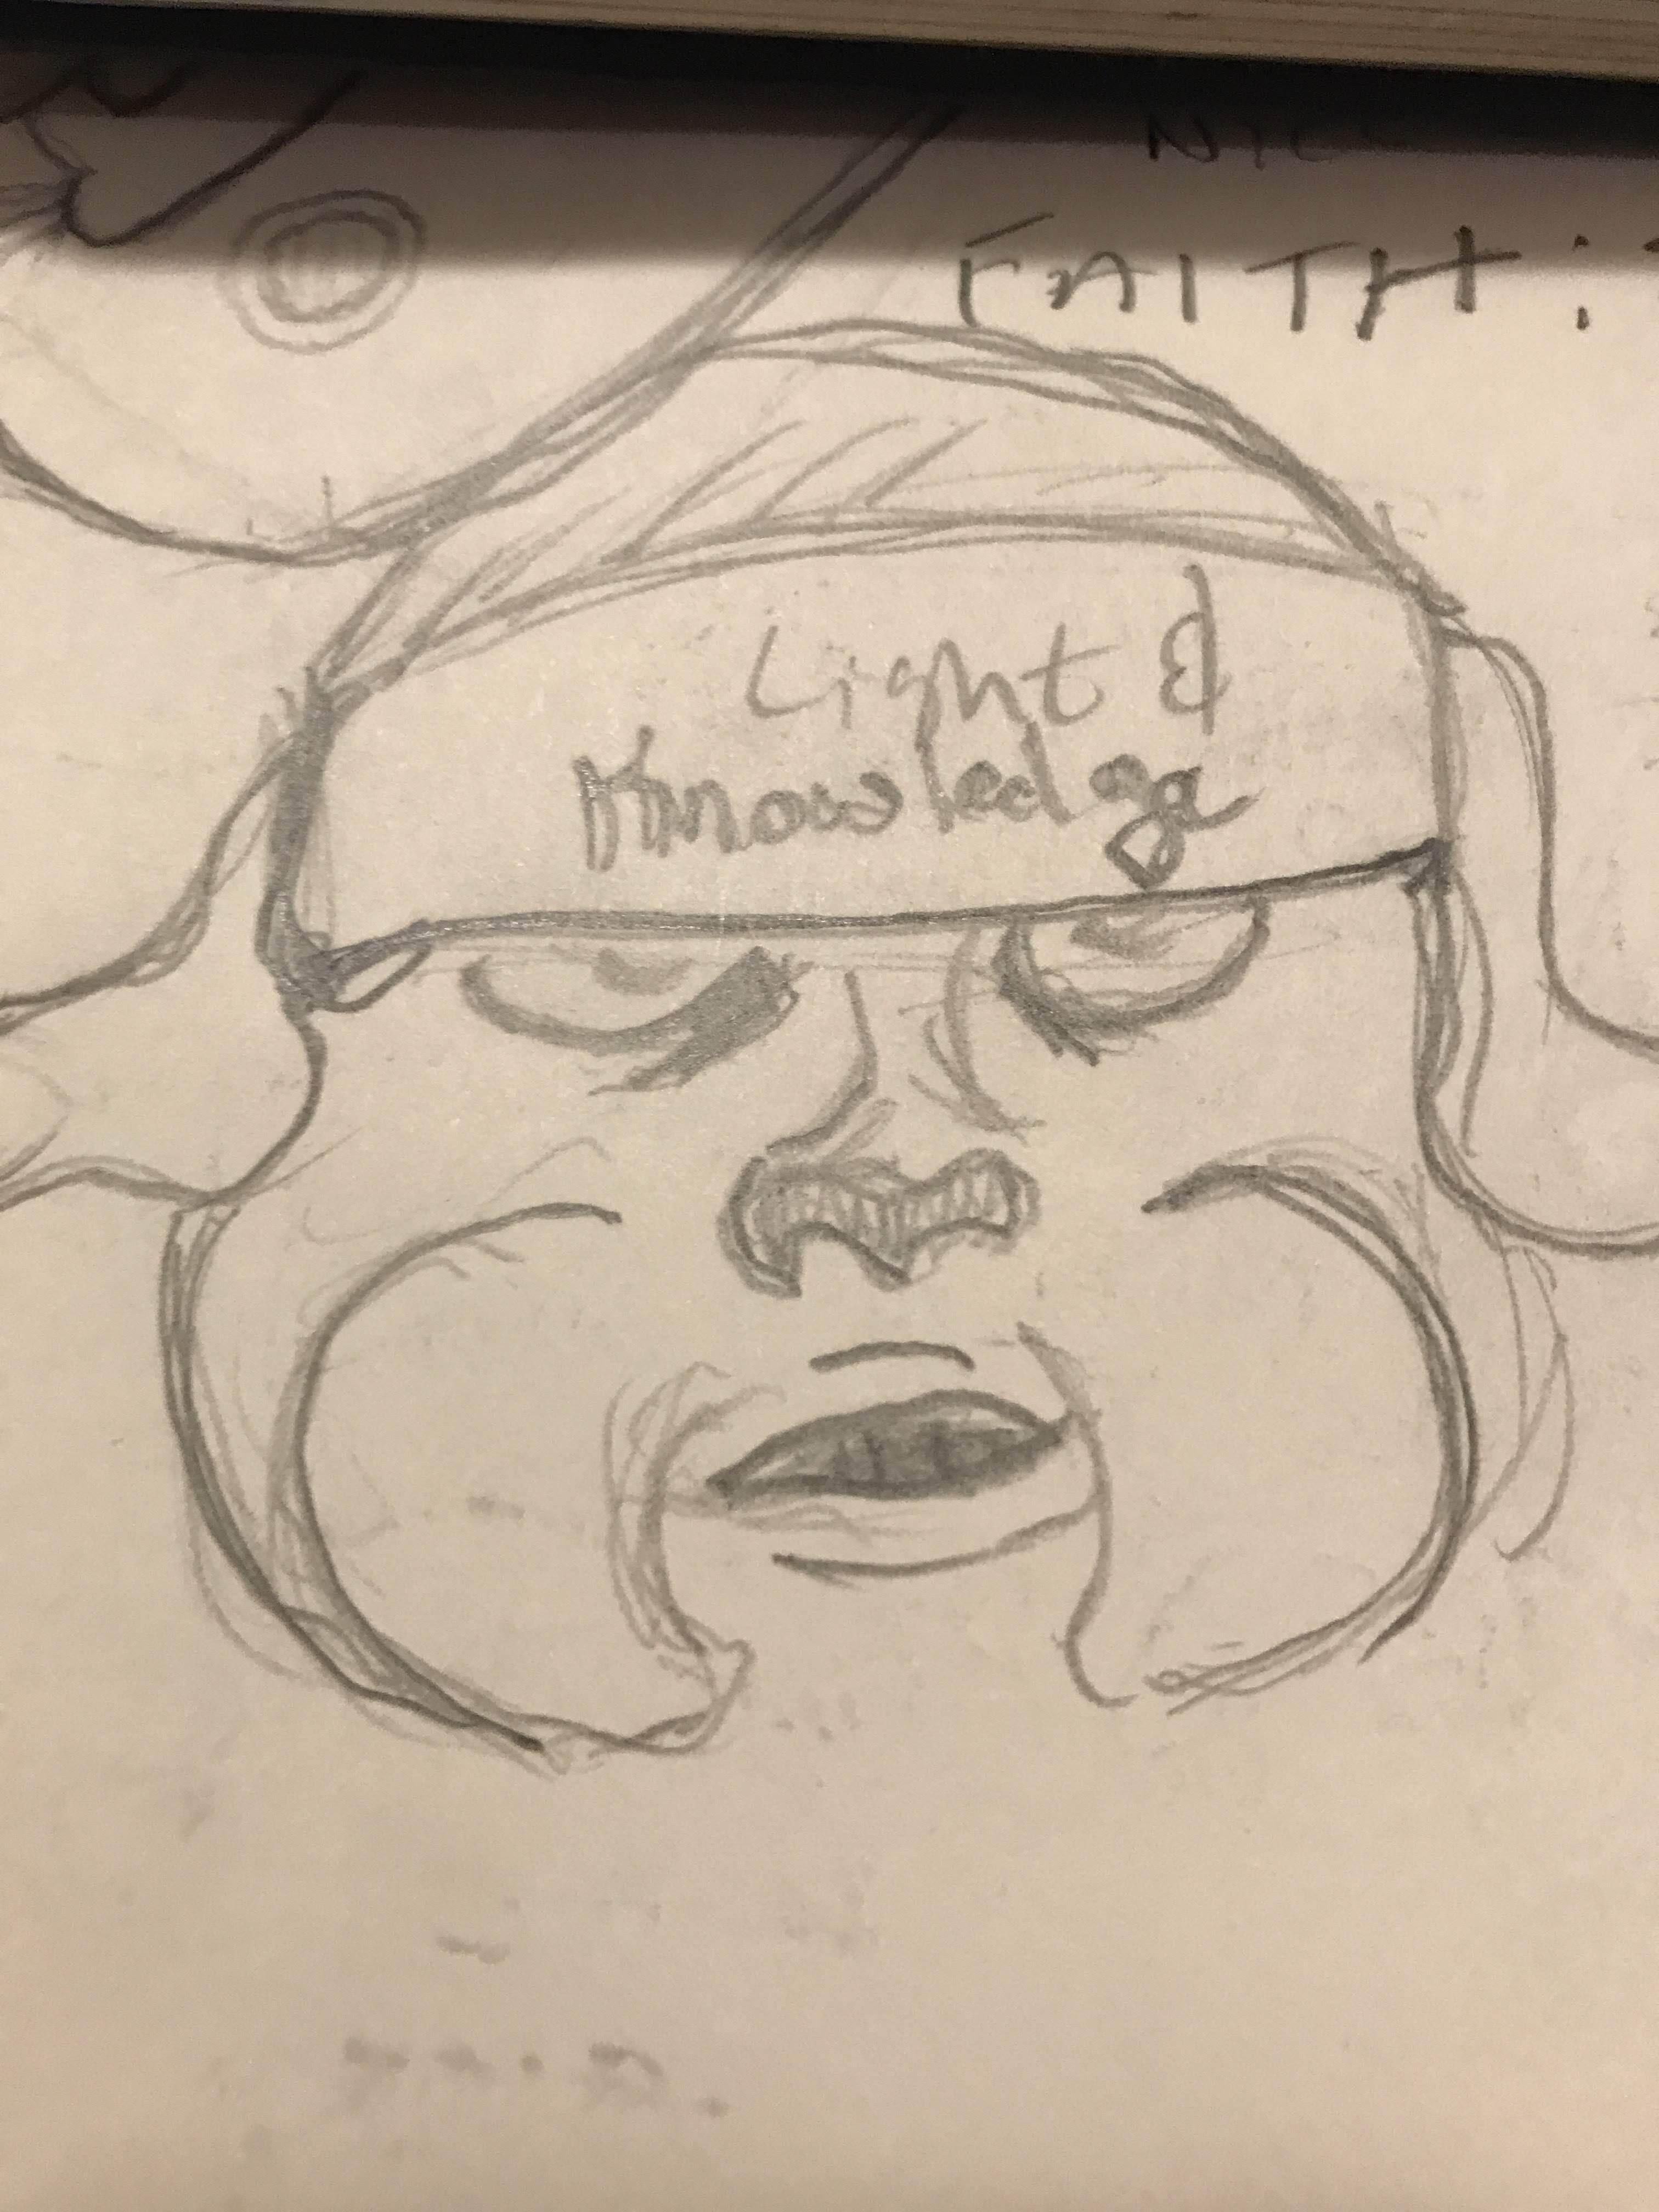 FAITH:
Light &
Knowledge